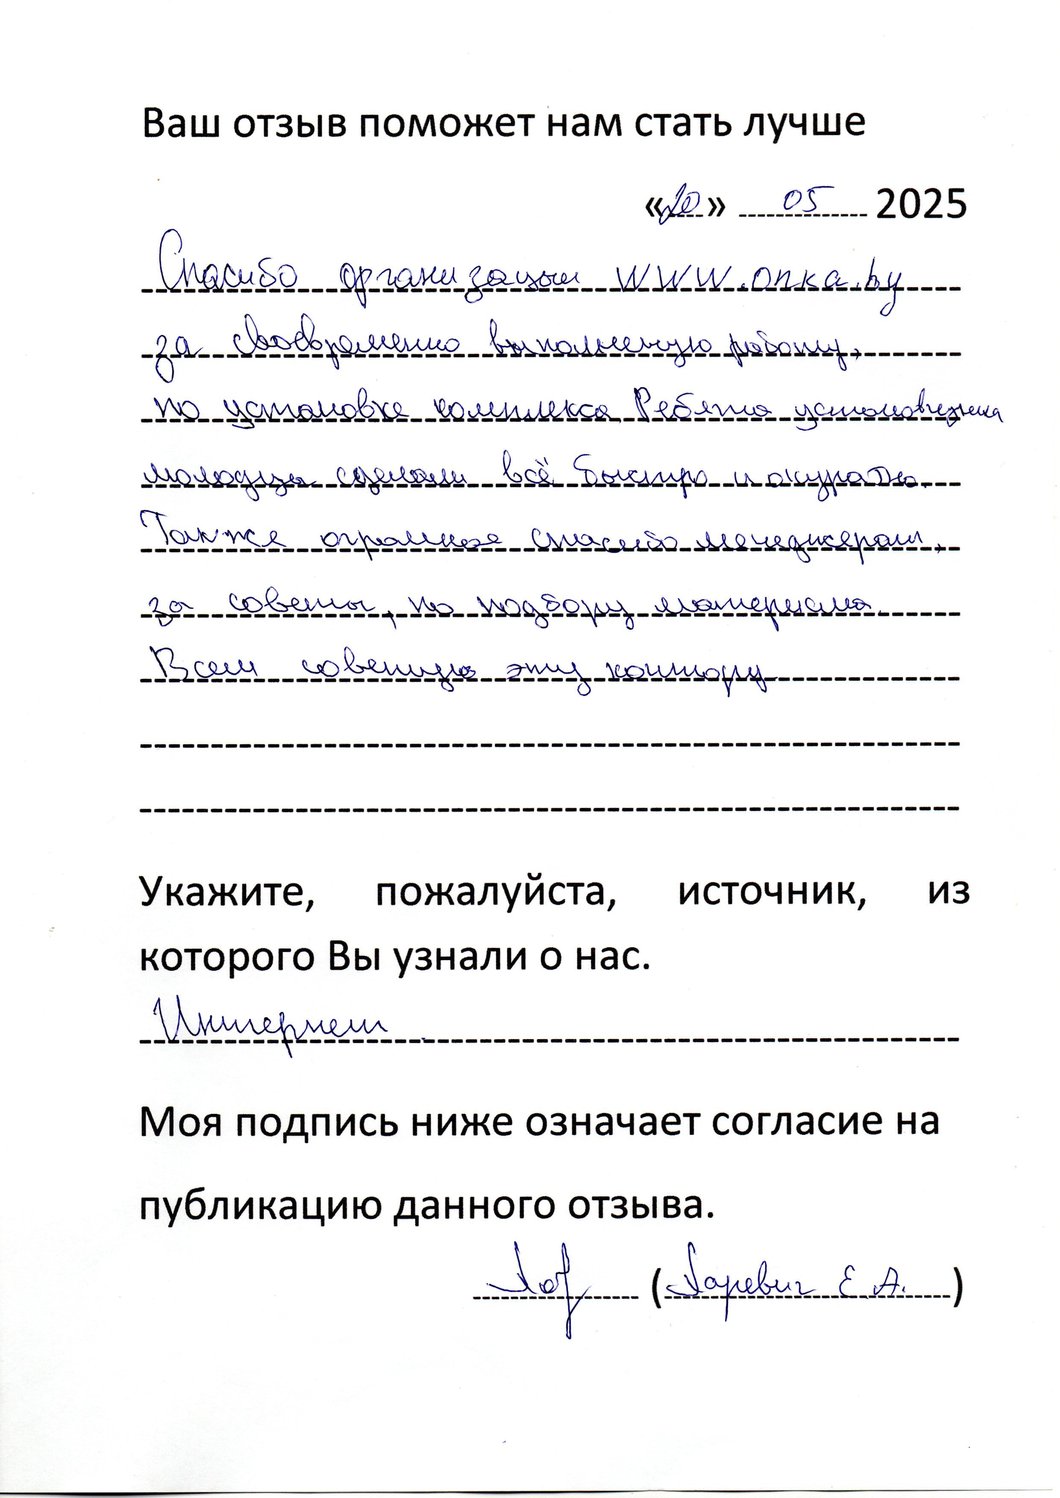 Ваш отзыв поможет нам стать лучше
«20» 05 2025
Спасибо организации www.onka.by
за своевременно выполненную работу,
по установке комплекса Ребята
молодцы сделали всё быстро и акуратно.
Также огромное спасибо менеджерам,
за советы, по подбору материала.
Всем советую эту контору
Укажите, пожалуйста, источник, из
которого Вы узнали о нас.
Интернет
Моя подпись ниже означает согласие на
публикацию данного отзыва.
( Е.А.)